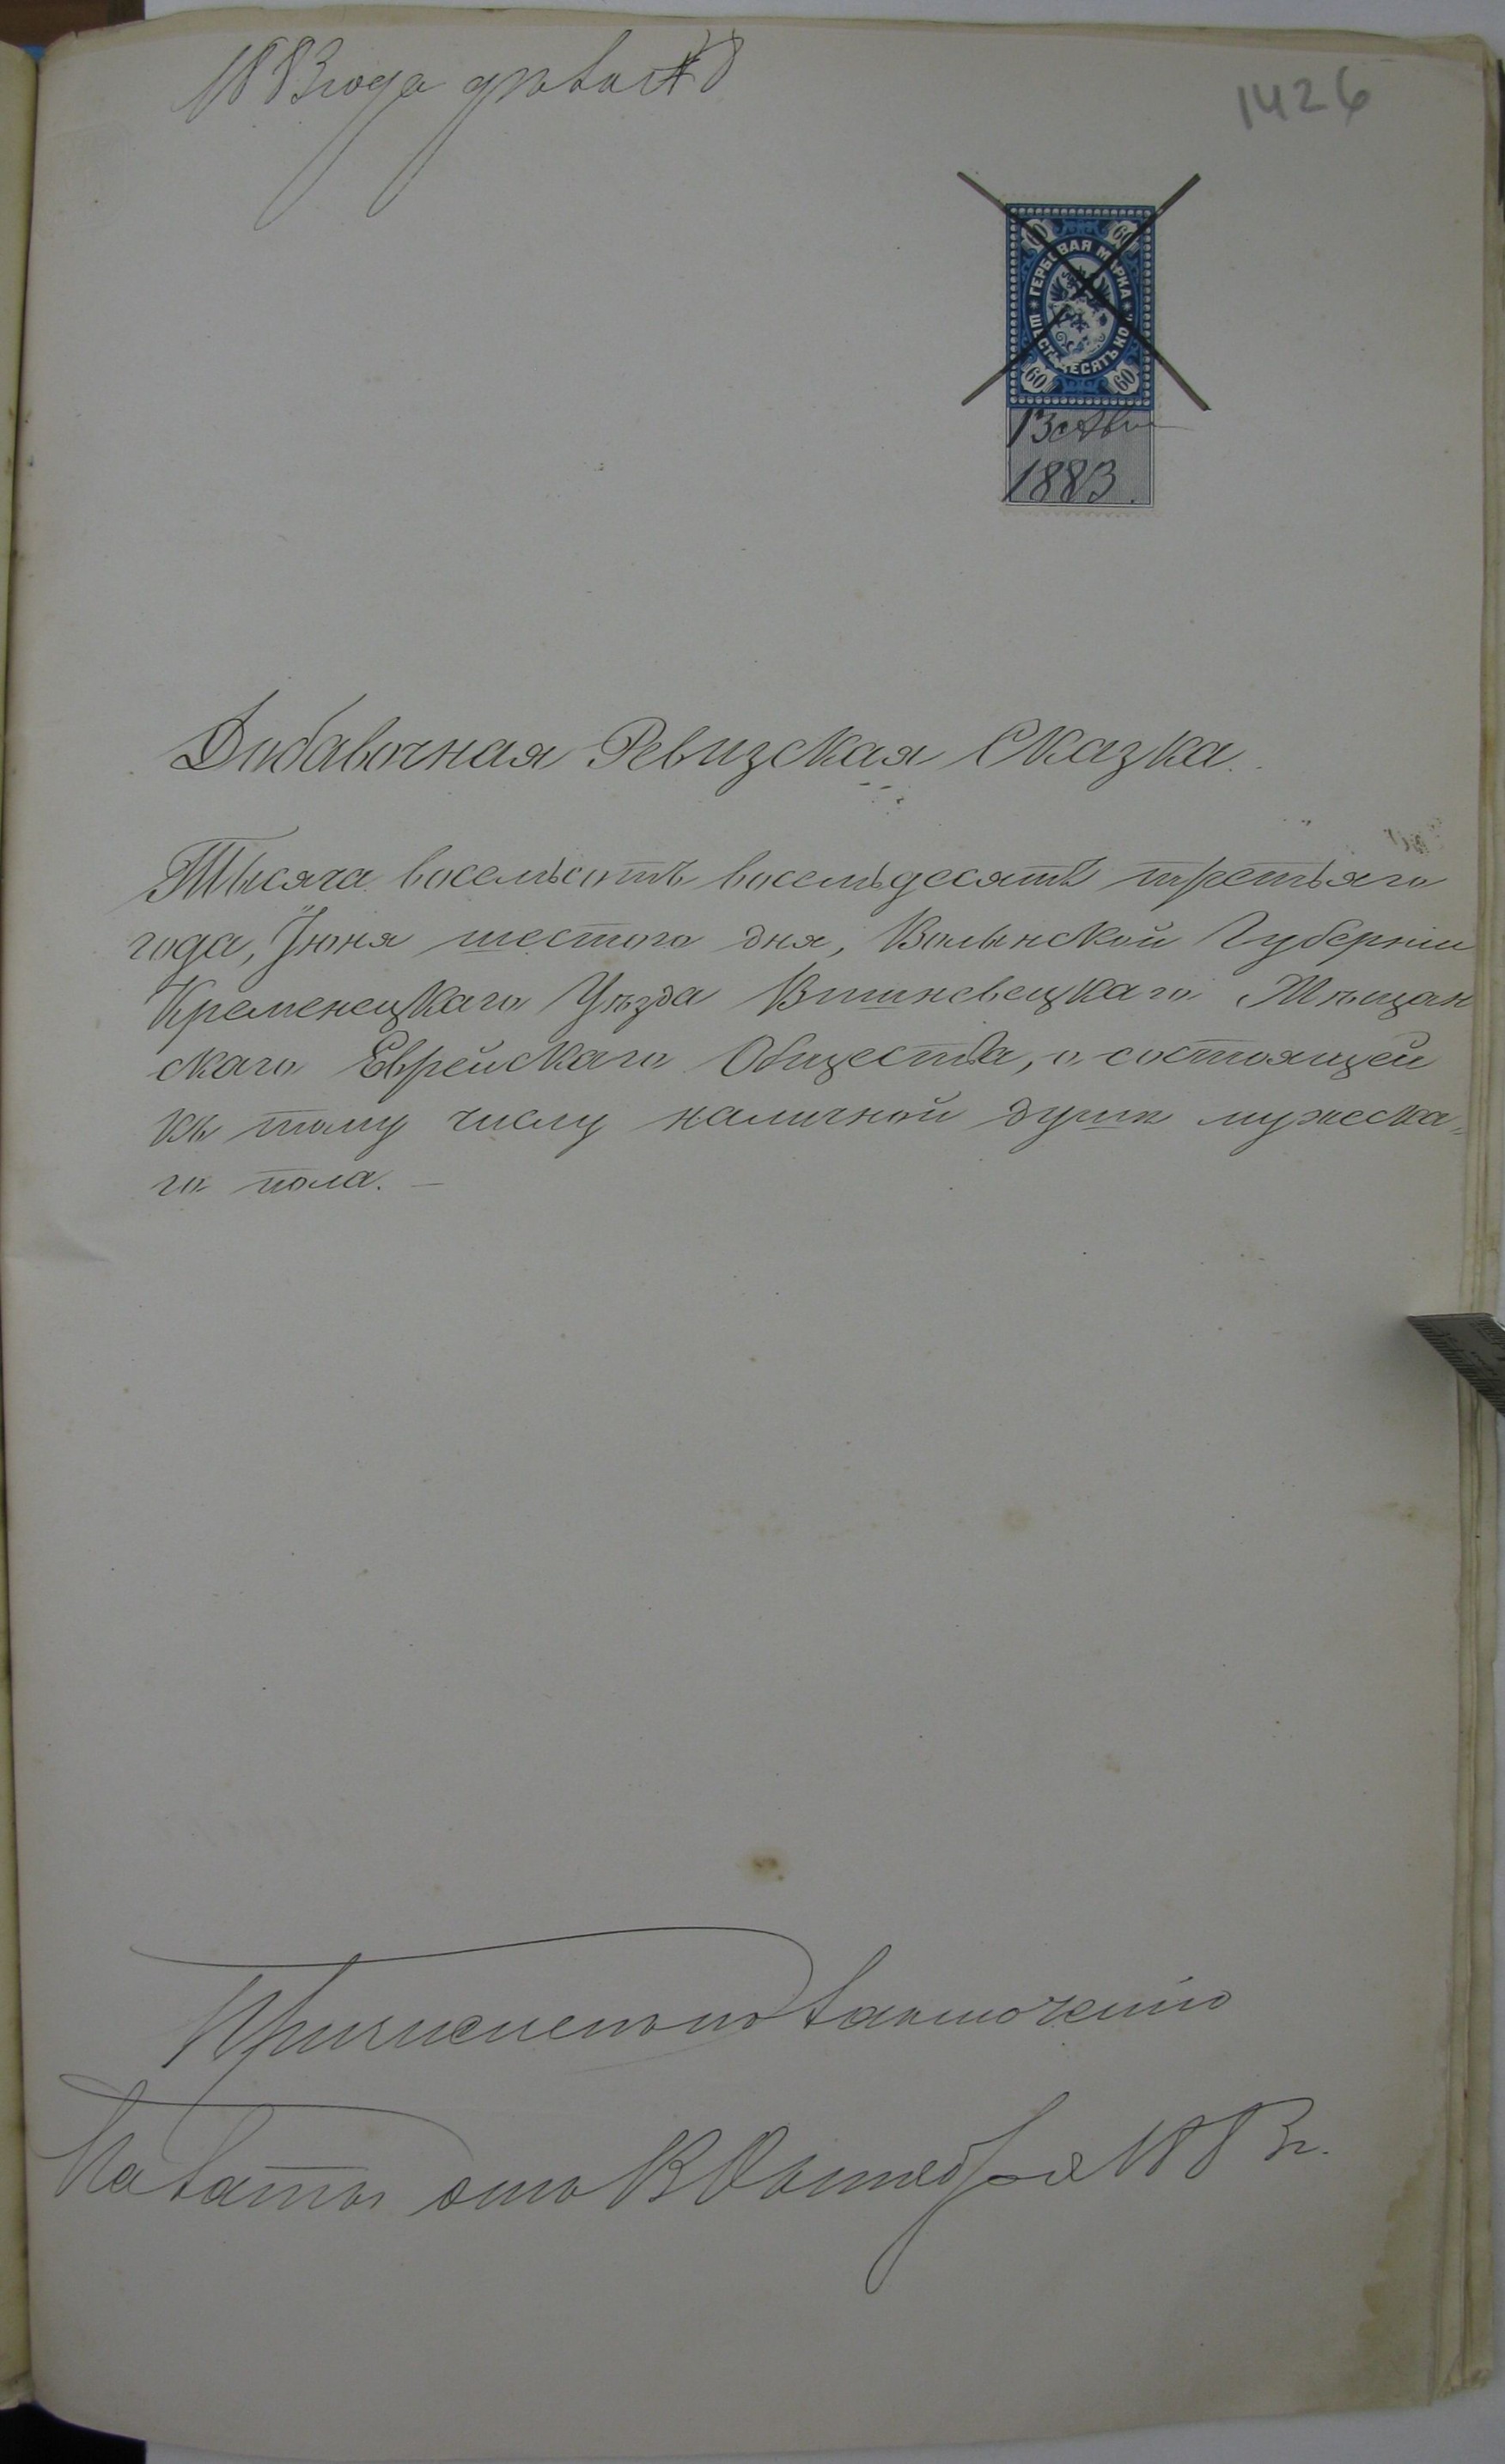 1883 года
1426
60 60
ГЕРБОВАЯ МАРКА
ШЕСТЬДЕСЯТЪ КОП
60 60
13 Авг
1883.
Добавочная Ревизская Сказка.
Тысяча восемьсотъ восемьдесятъ третьяго
года, Іюня шестого дня, Волынской Губерніи
Кременецкаго Уѣзда Вишневецкаго Мѣщан
скаго Еврейскаго Общества, о состоящей
къ тому числу наличной душѣ мужеска-
го пола. —
Причисленъ по включенію
Палаты отъ 13 Октября 1883 г.